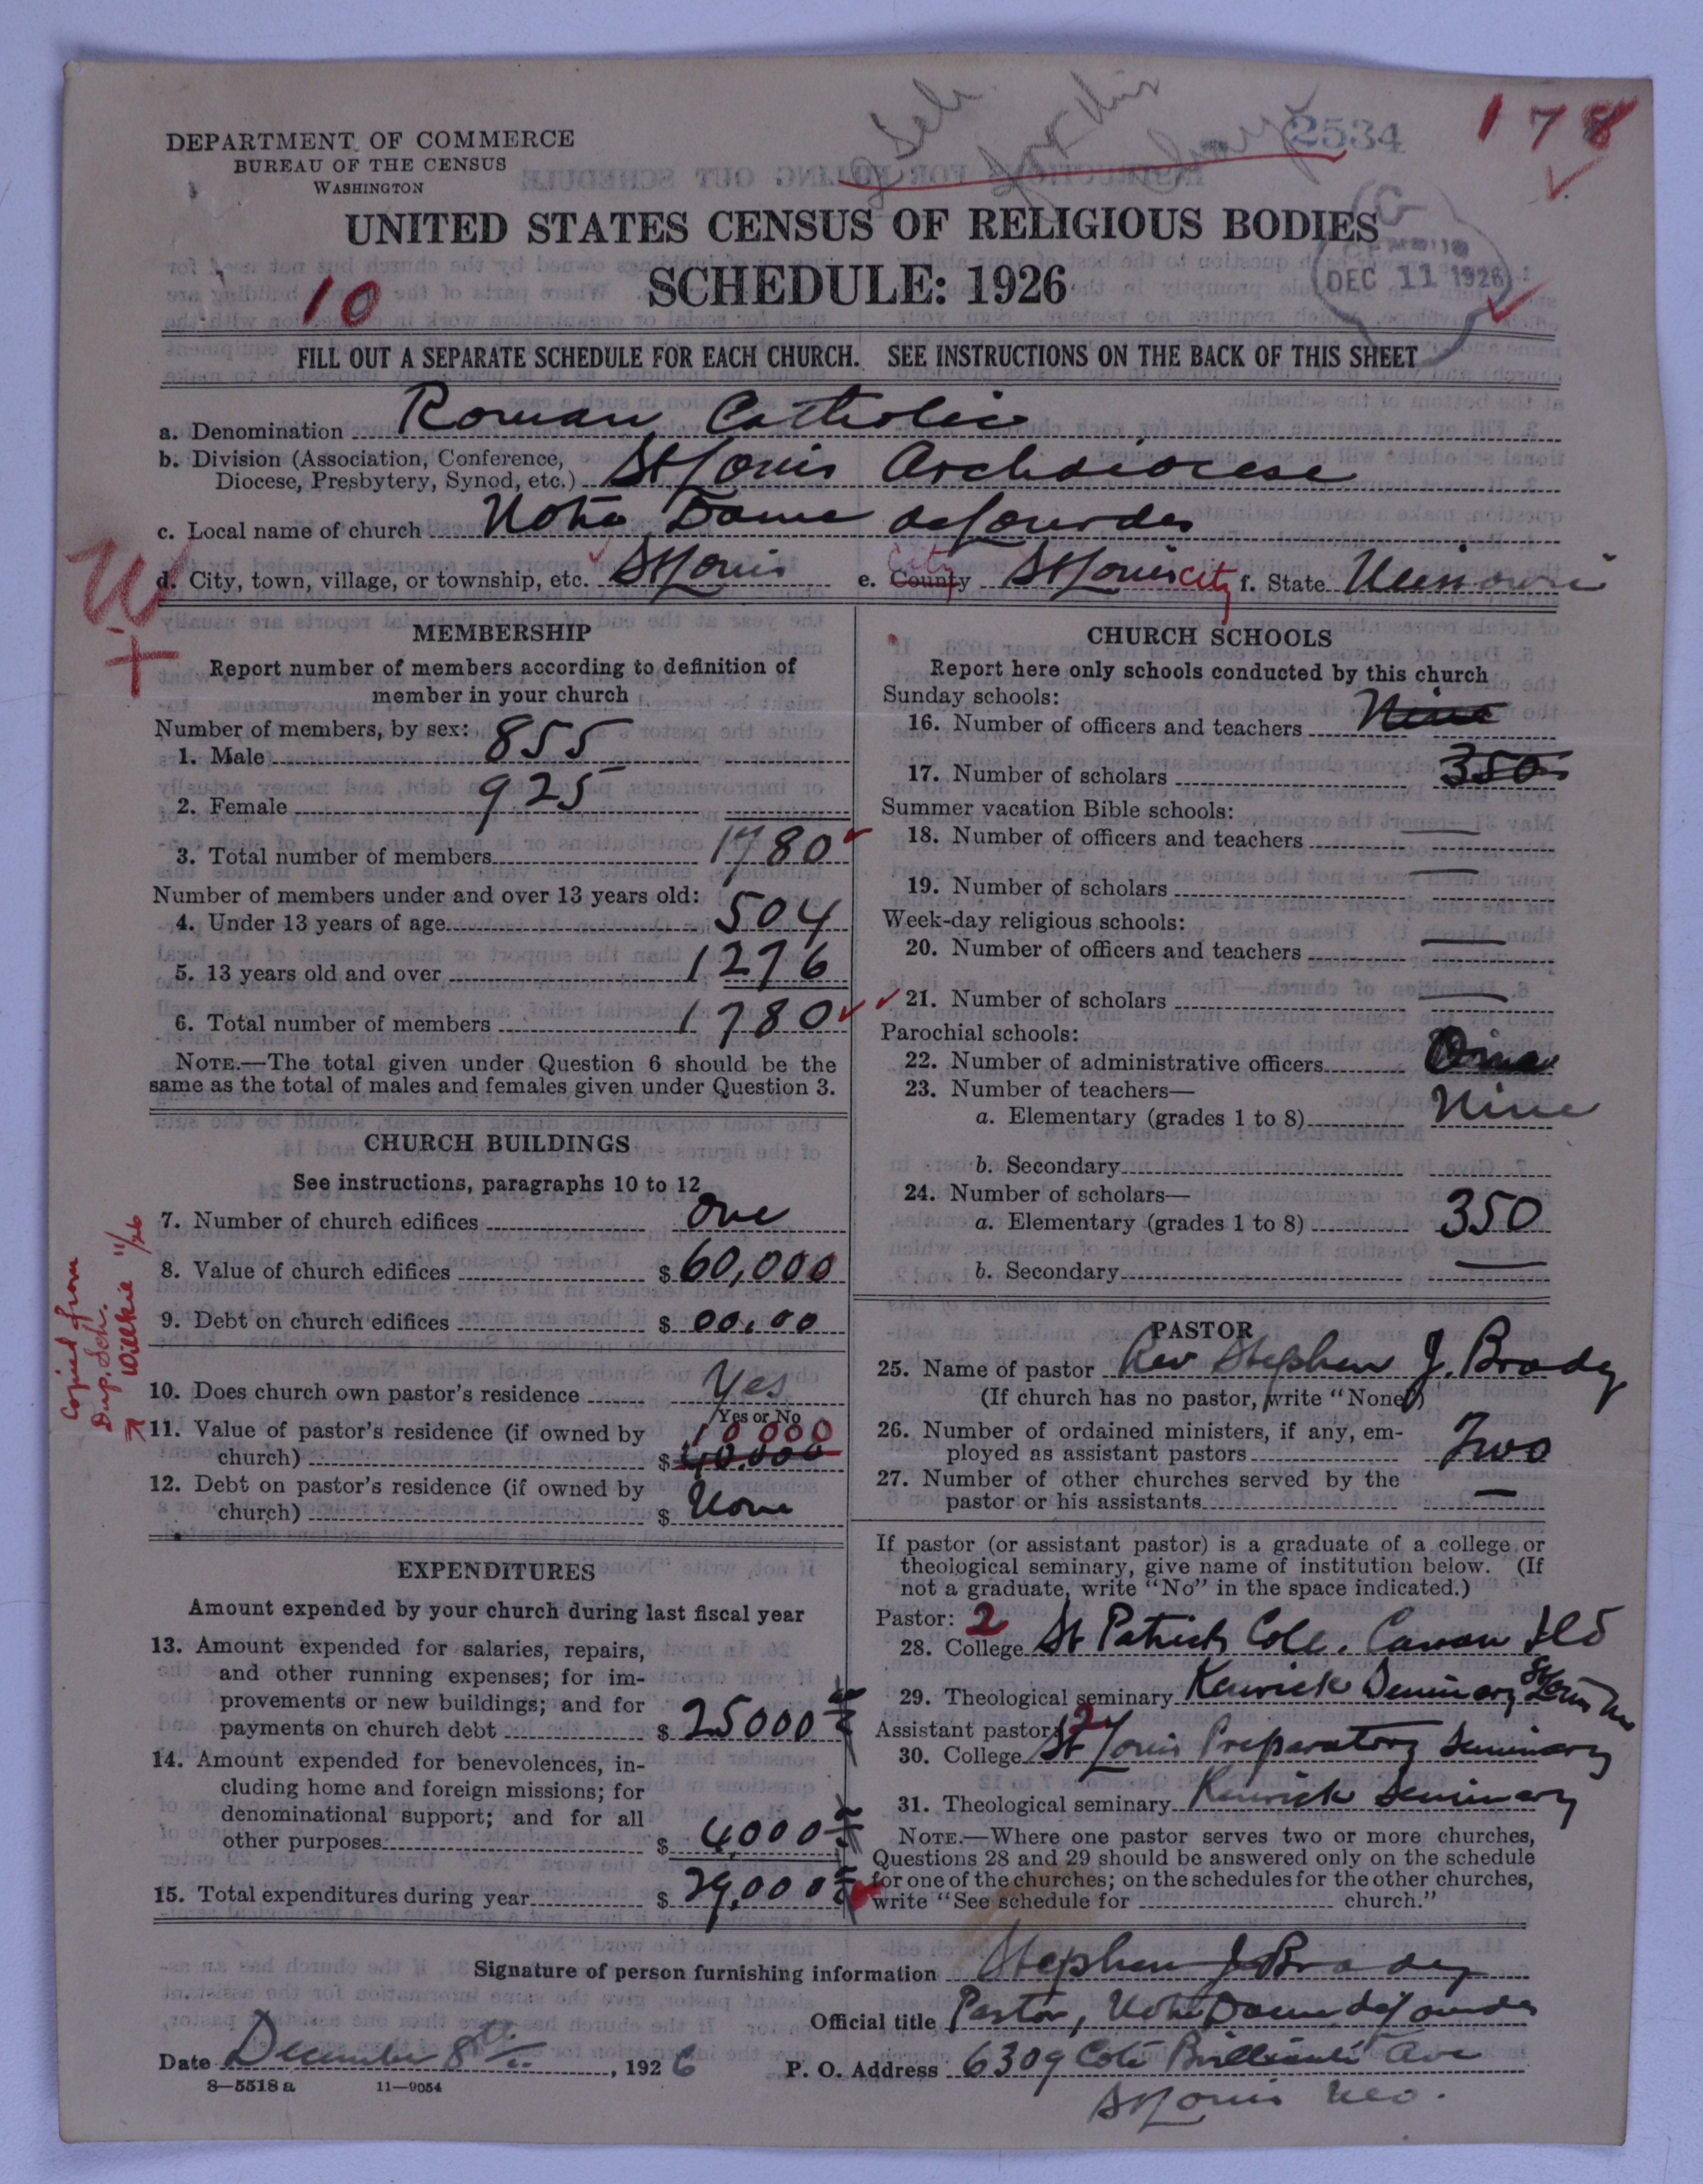 2534
178
DEPARTMENT OF COMMERCE
BUREAU OF THE CENSUS
WASHINGTON
UNITED STATES CENSUS OF RELIGIOUS BODIES
SCHEDULE: 1926
10
CENSUS
DEC 11 1926
FILL OUT A SEPARATE SCHEDULE FOR EACH CHURCH. SEE INSTRUCTIONS ON THE BACK OF THIS SHEET
a. Denomination Roman Catholic
b. Division (Association, Conference, Diocese, Presbytery, Synod, etc.) St Louis Archdiocese
c. Local name of church Notre Dame de Lourdes
d. City, town, village, or township, etc. St Louis e. County City St Louis city f. State Missouri
W
+
MEMBERSHIP
Report number of members according to definition of
member in your church
Number of members, by sex:
1. Male 855
2. Female 925
3. Total number of members 1780
Number of members under and over 13 years old:
4. Under 13 years of age 504
5. 13 years old and over 1276
6. Total number of members 1780
NOTE.—The total given under Question 6 should be the
same as the total of males and females given under Question 3.
CHURCH BUILDINGS
See instructions, paragraphs 10 to 12
7. Number of church edifices One
8. Value of church edifices $ 60,000
9. Debt on church edifices $ 00.00
10. Does church own pastor's residence Yes
Yes or No
11. Value of pastor's residence (if owned by
church) $ 40.000 10 000
12. Debt on pastor's residence (if owned by
church) $ None
Copied from
Dup. Sch.
Willkie 11/26
EXPENDITURES
Amount expended by your church during last fiscal year
13. Amount expended for salaries, repairs,
and other running expenses; for im-
provements or new buildings; and for
payments on church debt $ 25000
14. Amount expended for benevolences, in-
cluding home and foreign missions; for
denominational support; and for all
other purposes $ 4000
15. Total expenditures during year $ 29,000
CHURCH SCHOOLS
Report here only schools conducted by this church
Sunday schools:
16. Number of officers and teachers Nine
17. Number of scholars 350
Summer vacation Bible schools:
18. Number of officers and teachers —
19. Number of scholars —
Week-day religious schools:
20. Number of officers and teachers —
21. Number of scholars —
Parochial schools:
22. Number of administrative officers
23. Number of teachers—
a. Elementary (grades 1 to 8) Nine
b. Secondary
24. Number of scholars—
a. Elementary (grades 1 to 8) 350
b. Secondary —
PASTOR
25. Name of pastor Rev Stephen J. Brady
(If church has no pastor, write "None")
26. Number of ordained ministers, if any, em-
ployed as assistant pastors Two
27. Number of other churches served by the
pastor or his assistants —
If pastor (or assistant pastor) is a graduate of a college or
theological seminary, give name of institution below. (If
not a graduate, write "No" in the space indicated.)
Pastor: 2
28. College St Patrick Coll.
29. Theological seminary Kenrick Seminary St Louis Mo
Assistant pastor: 2
30. College St Louis Preparatory Seminary
31. Theological seminary Kenrick Seminary
NOTE.—Where one pastor serves two or more churches,
Questions 28 and 29 should be answered only on the schedule
for one of the churches; on the schedules for the other churches,
write "See schedule for church."
Signature of person furnishing information Stephen J Brady
Official title Pastor, Notre Dame de Lourdes
Date December 8th, 1926 P. O. Address 6309 Cote Brilliante Ave
St Louis Mo.
8—5518 a 11—9054